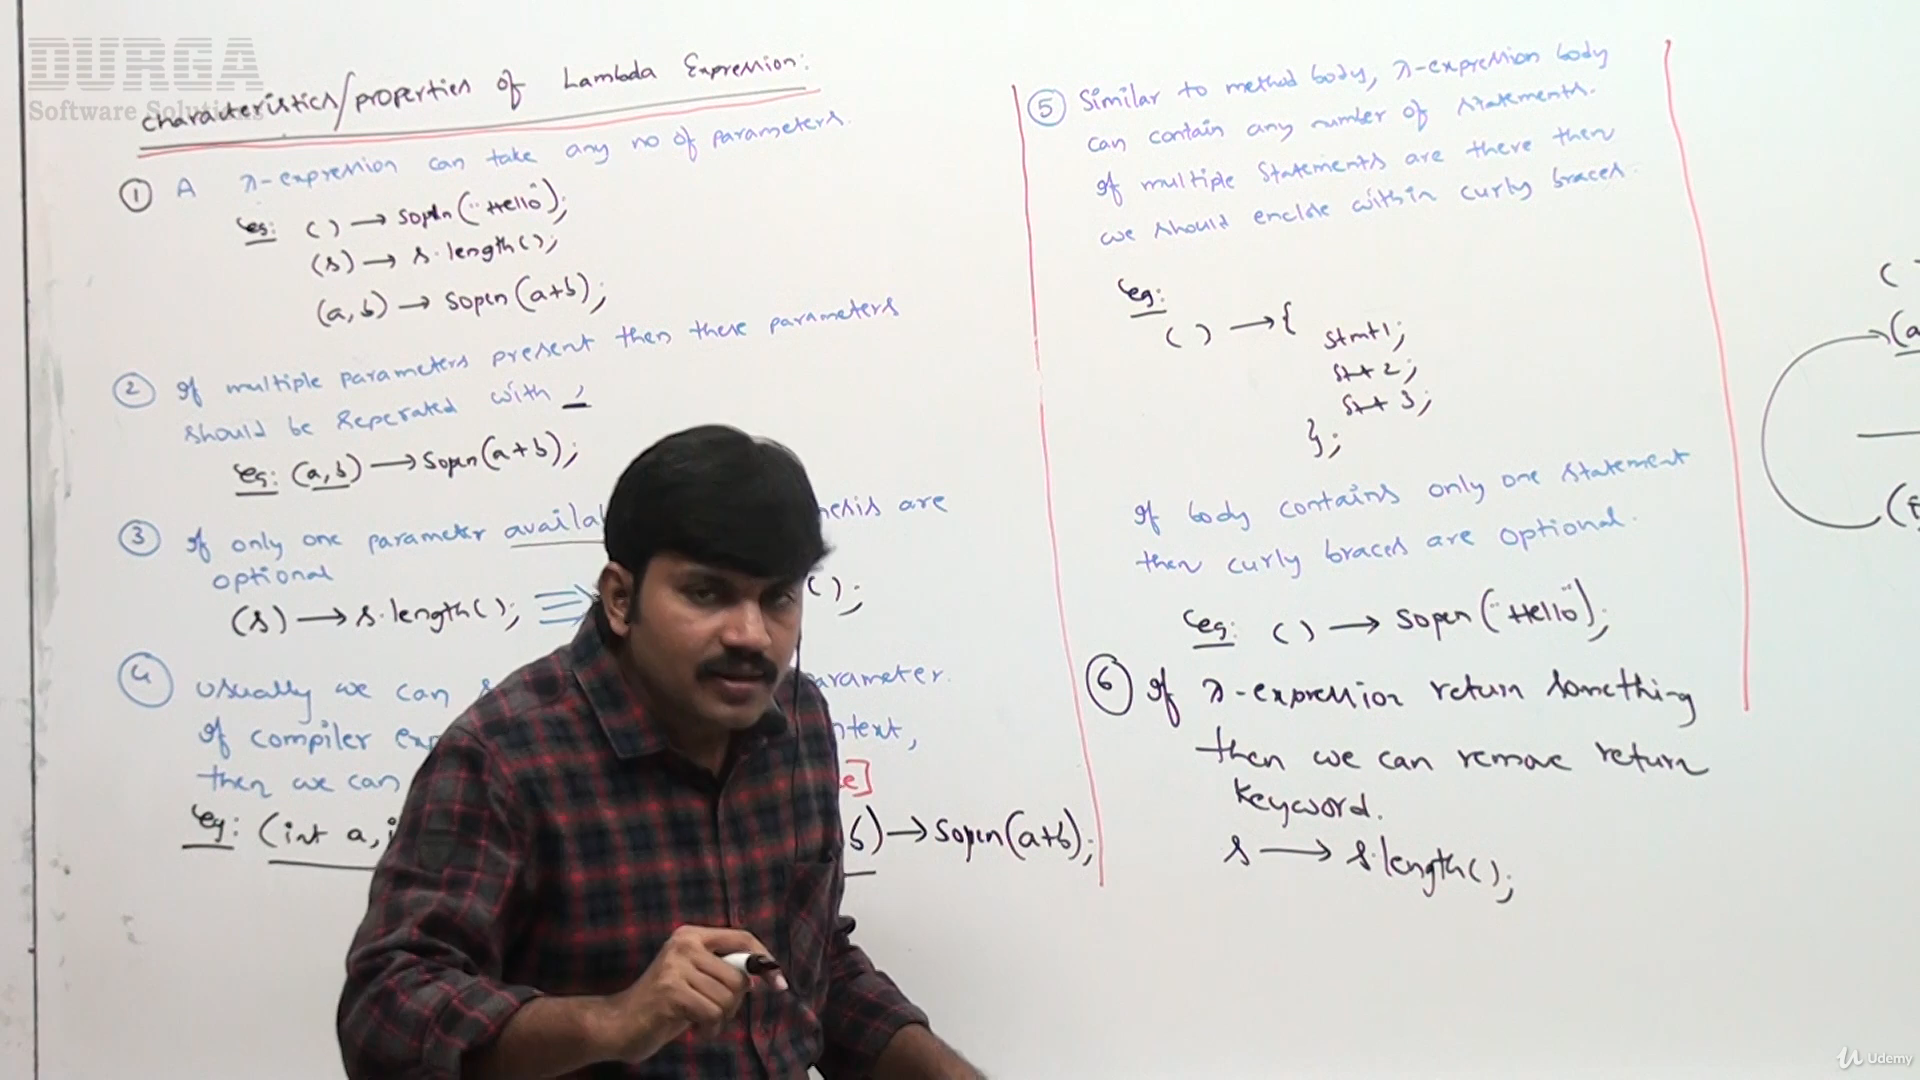 DURGA
Software Solutions
characteristics/properties of Lambda Expression:
① A λ-expression can take any no of parameters.
eg: ( ) → sopln("Hello");
(s) → s.length();
(a, b) → sopln(a+b);
② If multiple parameters present then these parameters
should be seperated with ,
eg: (a, b) → sopln(a+b);
③ If only one parameter are
optional
(s) → s.length(); ⇒ ( );
④ usually we can parameter.
If compiler
then we can ]
eg: (int a, b) → sopln(a+b);
⑤ Similar to method body, λ-expression body
can contain any number of statements.
If multiple statements are there then
we should enclose within curly braces.
eg:
( ) → {
stmt1;
stt 2;
stt 3;
};
If body contains only one statement
then curly braces are optional.
eg: ( ) → sopln("Hello");
⑥ If λ-expression return something
then we can remove return
keyword.
s → s.length();
Udemy